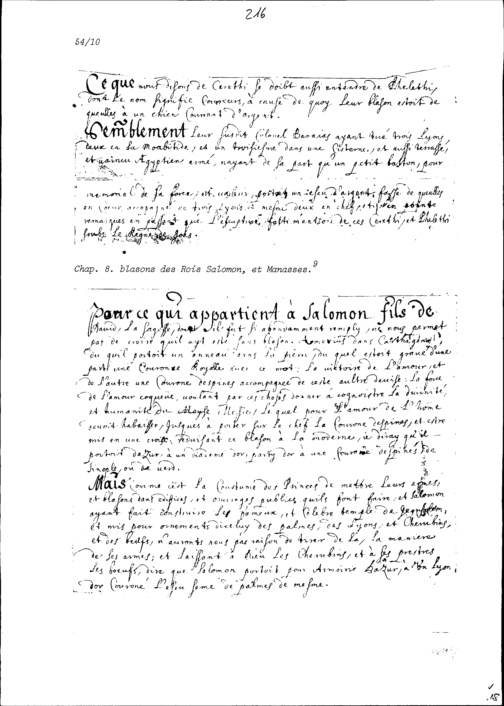 216
54/10
Ce que nous disons de Cerethi se doibt aussi entendre de Phelethi,
dont le nom signifie Coureurs, à cause de quoy leur blason estoit de
gueulles à un chien Courant d'argent.
Semblement Leur susdit Colonel Banaias ayant tué trois Lyons
deux en la Moabitide, et un troisiesme dans une Cisterne, et aussi terrassé,
et vaincu Ægyptien armé, n'ayant de sa part qu'un petit baston, pour
memorial de sa force, et, portoit un escu d'argent, fasse de gueulles
en cœur accompagné de trois Lyons de mesme deux en chef, et en pointe
remarques en passant que L'escripture, fait mention de ces Cerethi, et Phelethi
soubs Le Regne
Chap. 8. blasons des Rois Salomon, et Manasses.9
Pour ce qui appartient à Salomon fils de
David, La sagesse, dont il fut si abondamment remply, ne nous permet
pas de croire quil ayt esté sans blason. dans Carthagena
dit quil portoit un anneau dans la pierre du quel estoit gravé d'une
part une Couronne Royalle avec ce mot: La victoire de L'amour, et
de l'autre une Couronne despines accompagnee de ceste aultre devise: La force
de l'amour coqueue, voulant par ces choses donner à cognoistre La divinité,
et humanité du Messie, Le quel pour L'amour de L'home
devoit s'abaisser, jusques à porter sur le chef La Couronne despines, et estre
mis en une croix. Reduisant ce blason à La moderne, je diray qu'il
portoit dazur, à un diademe dor, party dor à une Couronne despines de
sinople, ou de verd.
Mais comme cest La Coustume des Princes de mettre Leurs armes,
et blasons dans edifices, et ouvrages publics quils font faire, et Salomon
ayant fait construire Le fameux, et Celebre temple de
et mis pour ornements diceluy des palmes, des Lyons, et Cherubins,
et des bœufs, n'aurons nous pas raison de tirer de La, La maniere
de ses armes; et Laissant à Dieu Les Cherubins, et à ses prestres
Les bœufs, dire que Salomon portoit pour Armoirie Dazur, à un Lyon
dor Couronné L'escu semé de palmes de mesme.
.15